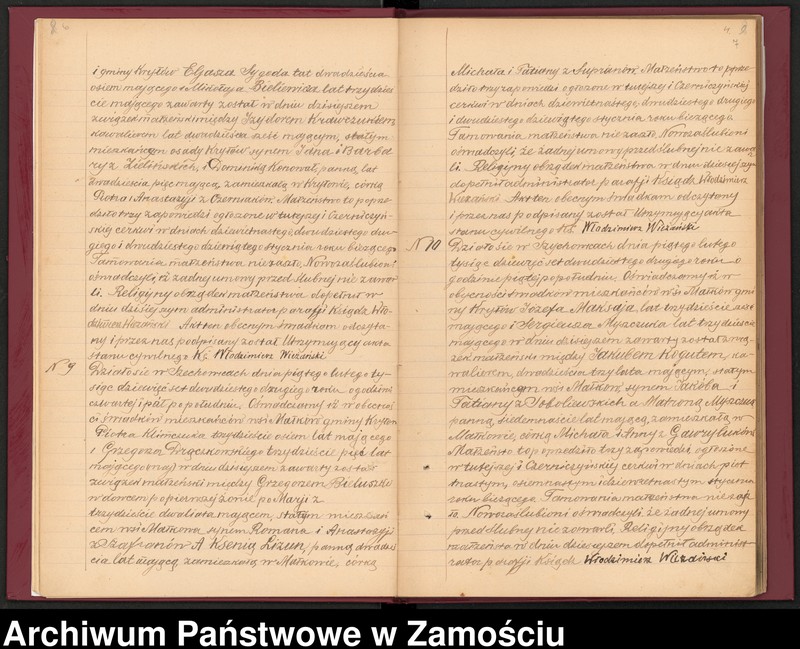 i gminy Kryłów Eljasza Sygoda lat dwadzieścia
osiem mającego i Mikołaja Bielemicza lat trzydzieś
cie mającego zawarty został w dniu dzisiejszem
związek małżeński między Izydorem Krawczukiem
kawalerem lat dwadzieścia sześć mającym, stałym
mieszkańcem osady Kryłów synem Jana i Barba
ry z i Dominiką Konował, panną, lat
dwadzieścia pięć mającą zamieszkałą w Kryłowie, córką
Piotra i Anastazyji z Małżeństwo to poprze
dziły trzy zapowiedzi ogłoszone w tutejszej i Czerniczyń-
skiej cerkwi w dniach dziewiętnastego, dwudziestego dru-
giego i dwudziestego dziewiątego stycznia roku bieżącego
Tamowania małżeństwa nie zaszło, Nowozaślubieni
oświadczyli, iż żadnej umowy przed ślubnej nie zawar
li. Religijny obrządek małżeństwa dopełnił w
dniu dzisiejszym administrator parafji Ksiądz Wło-
dzimierz Wieżański Akt ten obecnym świadkom odczyta-
ny i przez nas podpisany został Utrzymujący akta
stanu cywilnego Ks. Włodzimierz Wieżański
N 9 Działo się w Szychowcach dnia piątego lutego ty-
siąc dziewięćset dwudziestego drugiego roku o godzinie
czwartej i pół po południu, Oświadczamy, iż w obecnoś
ci świadków mieszkańców wsi Małków gminy Kryłów
Piotra Klimczuka trzydzieście osiem lat mającego
i Grzegorza trzydzieście pięć lat
mającego w dniu dzisiejszem zawarty został
związek małżeński między Grzegorzem
wdowcem po pierwszej żonie po Marji z
trzydzieście dwa lata mającem, stałym mieszkań
cem wsi Małkowa synem Romana i Anastazyji
z Szafranów A Ksenią Lizun, panną, dwadzieś
cia lat mającą, zamieszkałą w Małkowie, córką
7
Michała i Tatiany z Suprianów, Małżeństwo to poprze-
dziły trzy zapowiedzi ogłoszone w tutejszej i Czerniczyńskiej
cerkwi w dniach dziewiętnastego, dwudziestego drugiego
i dwudziestego dziewiątego stycznia roku bieżącego
Tamowania małżeństwa nie zaszło, Nowozaślubieni
oświadczyli, że żadnej umowy przed ślubnej nie zawar
li. Religijny obrządek małżeństwa w dniu dzisiejszym
dopełnił administrator parafji Ksiądz Włodzimierz
Wieżański Akt ten obecnym świadkom odczytany
i przez nas podpisany został Utrzymujący akta
stanu cywilnego Ks. Włodzimierz Wieżański
N 10 Działo się w Szychowcach dnia piątego lutego
tysiąc dziewięćset dwudziestego drugiego roku o
godzinie piątej po południu. Oświadczamy, iż w
obecności świadków mieszkańców wsi Małków gmi
ny Kryłów Józefa Maksaja, lat trzydzieście sześć
mającego i Sergieusza Myszczuka lat trzydzieście
mającego w dniu dzisiejszem zawarty został zwią
zek małżeński między Jakubem Kogutem, ka-
walerem, dwadzieścia trzy lata mającym, stałym
mieszkańcem wsi Małków, synem Jakóba i
Tatiany z a Matroną Myszczuk
panną, siedemnaście lat mającą, zamieszkałą w
Małkowie, córką Michała i Anny z Gawryluków
Małżeństwo to poprzedziło trzy zapowiedzi, ogłoszone
w tutejszej i Czerniczyńskiej cerkwi w dniach pięt
nastym, osiemnastym i dziewiętnastym stycznia
roku bieżącego Tamowania małżeństwa nie zasz
ło Nowozaślubieni oświadczyli, że żadnej umowy
przed ślubnej nie zawarli, Religijny obrządek
małżeństwa w dniu dzisiejszem dopełnił administ-
rator parafji Ksiądz Włodzimierz Wieżański
Archiwum Państwowe w Zamościu